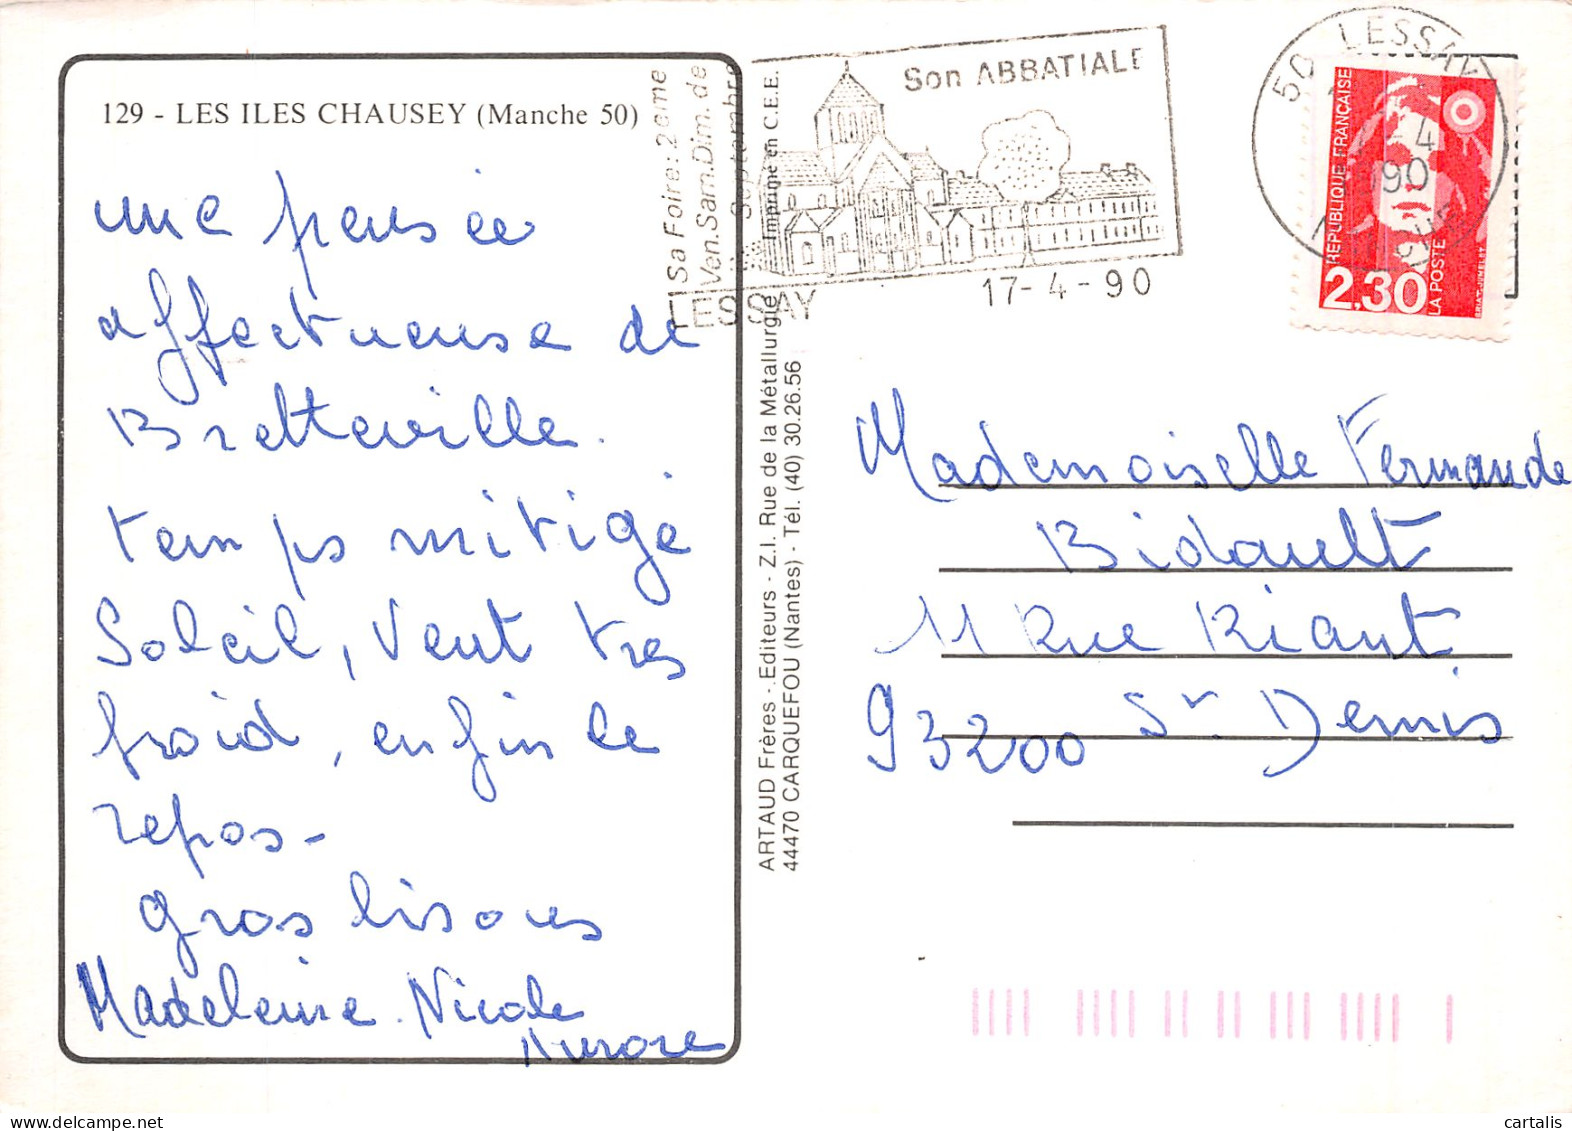 129 - LES ILES CHAUSEY (Manche 50)
une pensée
affectueuse de
Bretteville.
temps mitigé
Soleil, Vent tres
froid, enfin le
repos -
gros bisous
Madeleine. Nicole
Aurore
Sa Foire: 2eme
Ven. Sam. Dim. de
Septembre
LESSAY
Son ABBATIALE
17-4-90
Imprimé en C.E.E.
ARTAUD Frères - Editeurs - Z.I. Rue de la Métallurgie
44470 CARQUEFOU (Nantes) - Tél. (40) 30.26.56
50 LESSAY
RÉPUBLIQUE FRANÇAISE
2,30
LA POSTE
Mademoiselle Fernande
Bidault
11 Rue Riant
93200 St Denis
cartalis